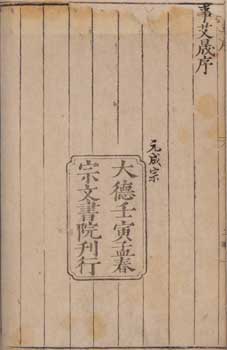 事艾晟序
元成宗
大德壬寅孟春
宗文書院刊行